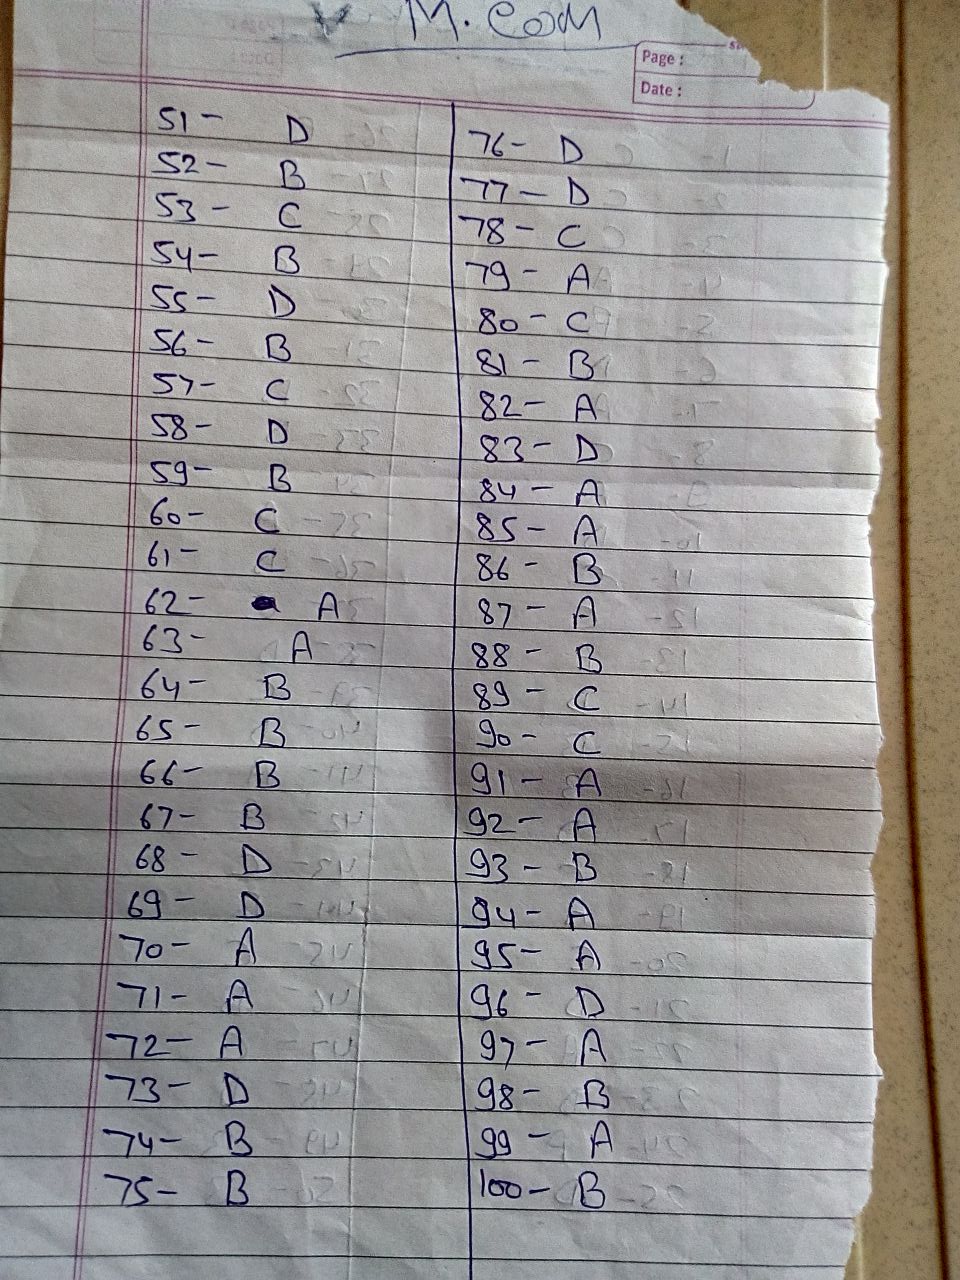 M. Com
Page :
Date :
51- D
52- B
53- C
54- B
55- D
56- B
57- C
58- D
59- B
60- C
61- C
62- A
63- A
64- B
65- B
66- B
67- B
68- D
69- D
70- A
71- A
72- A
73- D
74- B
75- B
76- D
77- D
78- C
79- A
80- C
81- B
82- A
83- D
84- A
85- A
86- B
87- A
88- B
89- C
90- C
91- A
92- A
93- B
94- A
95- A
96- D
97- A
98- B
99- A
100- B